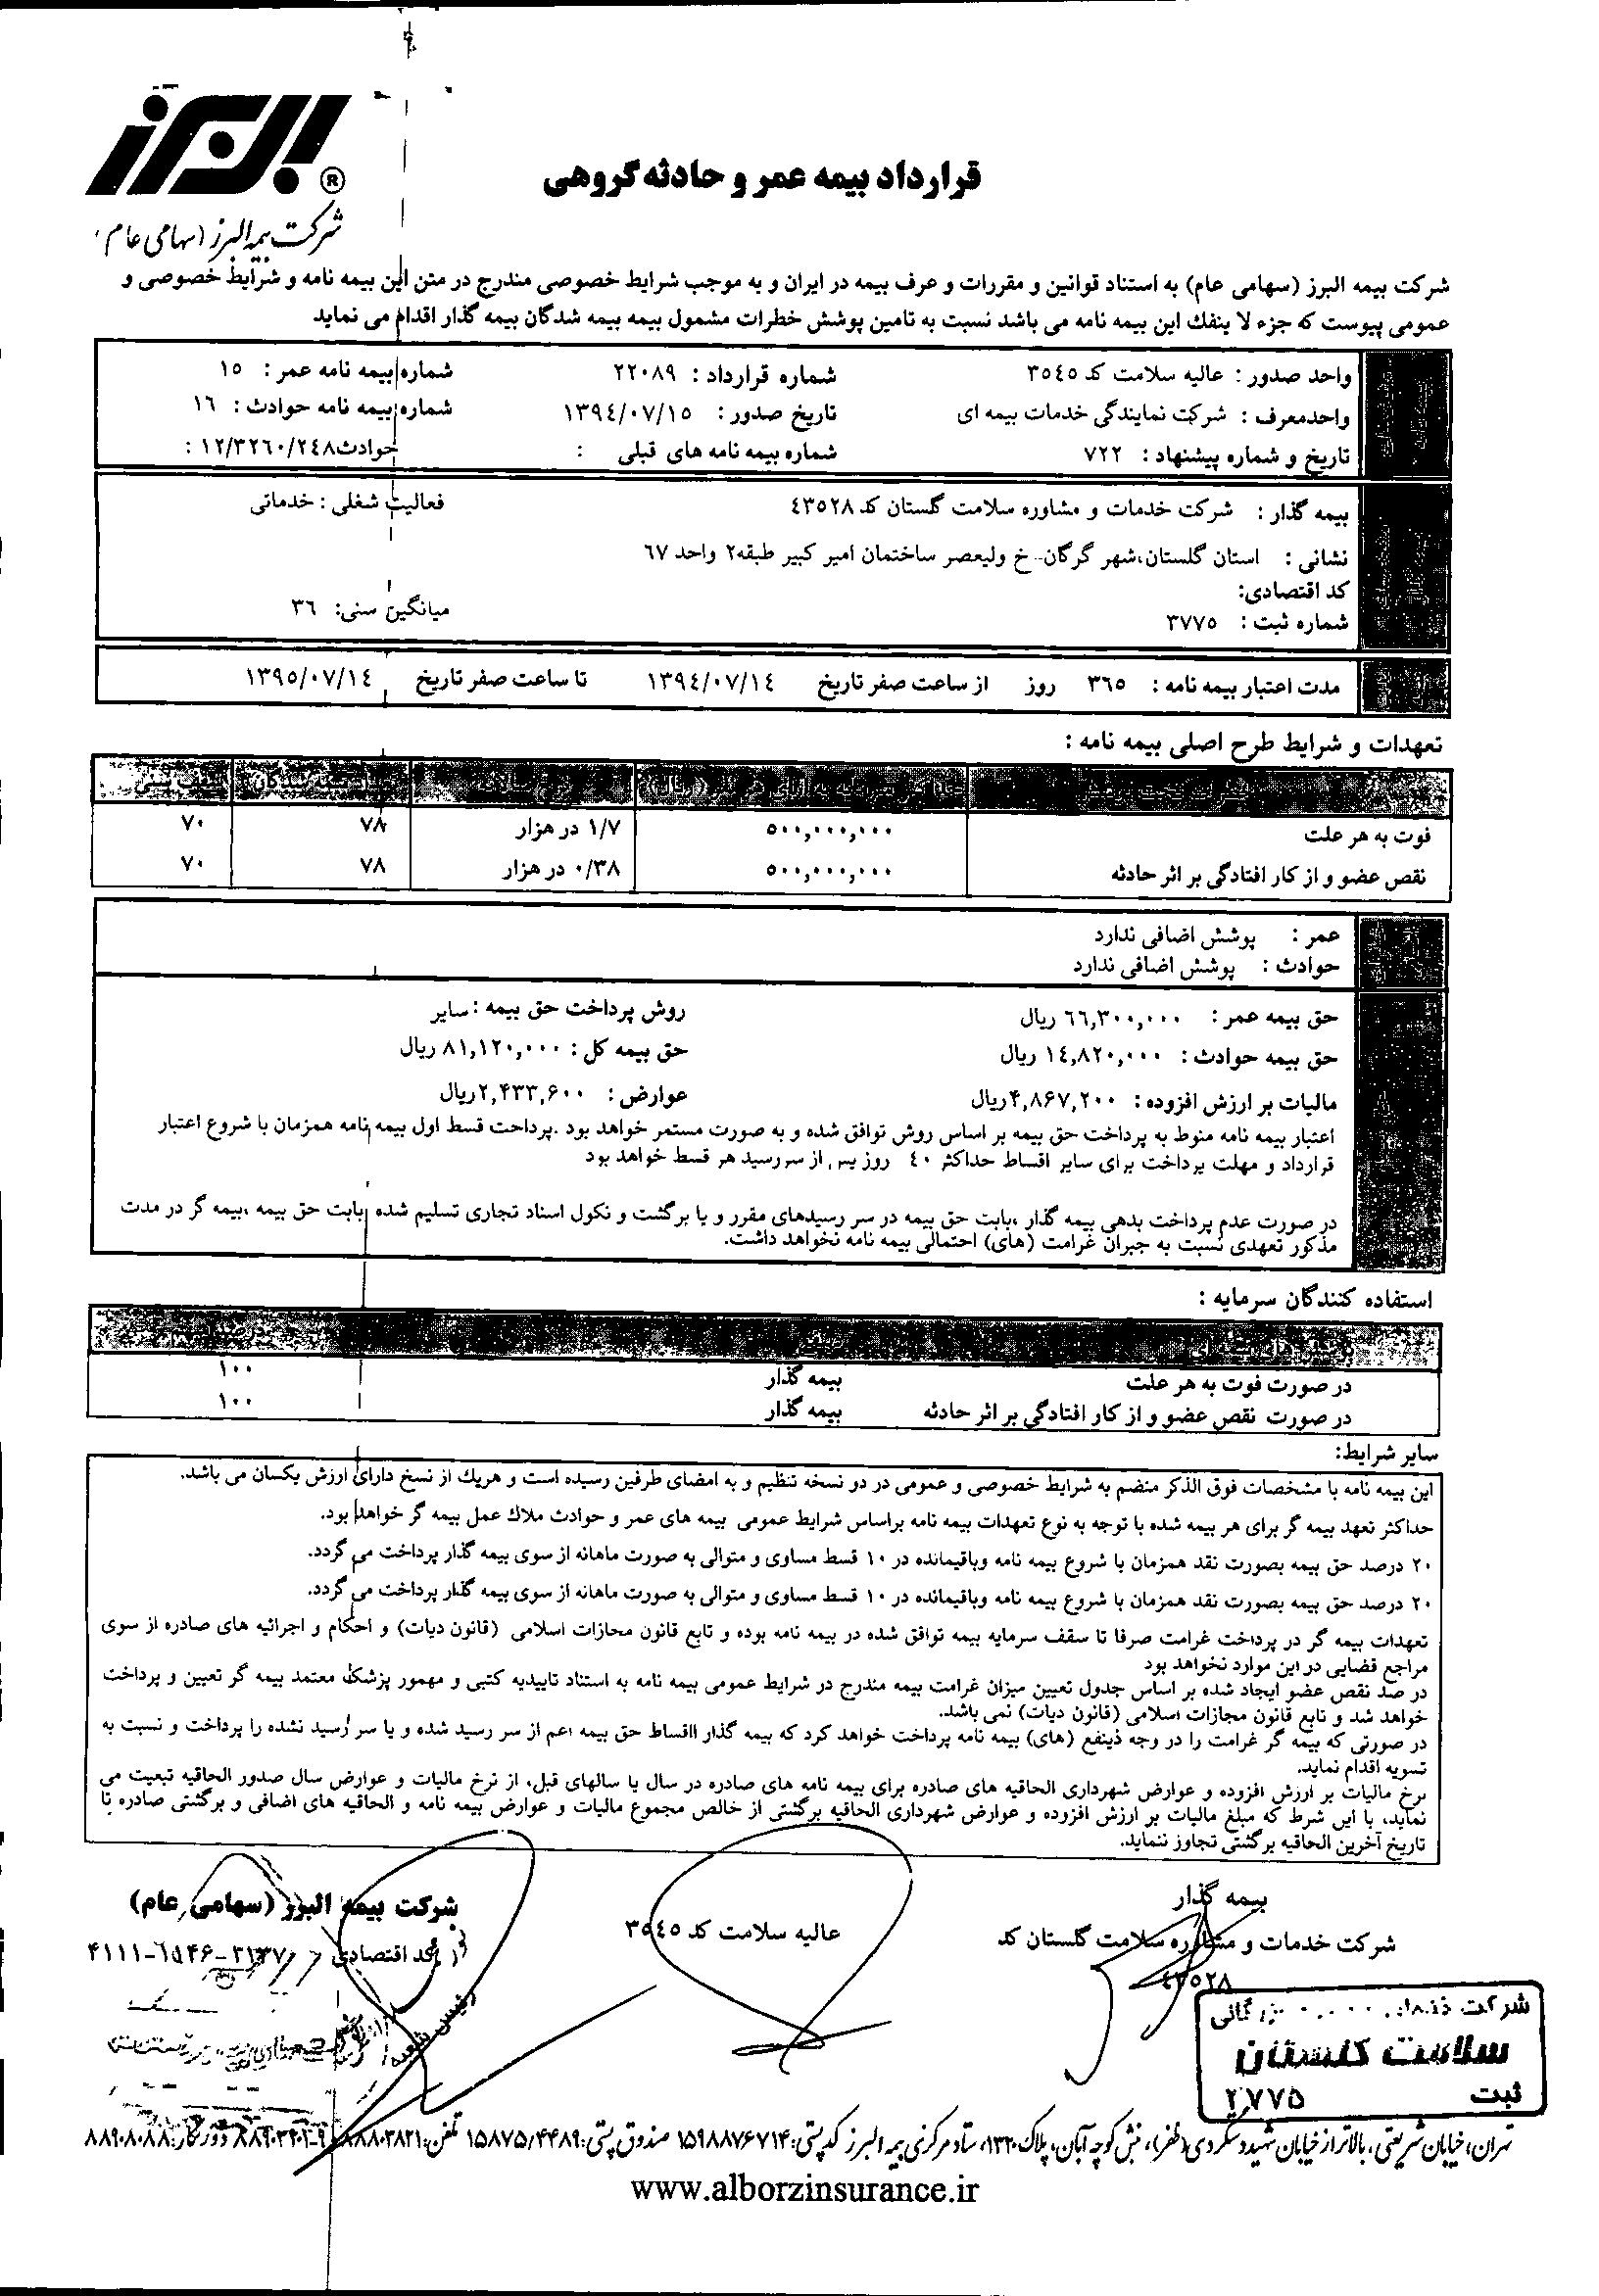 البرز
شرکت بیمه البرز (سهامی عام)
قرارداد بیمه عمر و حادثه گروهی
شرکت بیمه البرز (سهامی عام) به استناد قوانین و مقررات و عرف بیمه در ایران و به موجب شرایط خصوصی مندرج در متن این بیمه نامه و شرایط خصوصی و
عمومی پیوست که جزء لا ینفك این بیمه نامه می باشد نسبت به تامین پوشش خطرات مشمول بیمه بیمه شدگان بیمه گذار اقدام می نماید
واحد صدور : عالیه سلامت کد ٣٥٤٥ شماره قرارداد : ٢٢٠٨٩ شماره بیمه نامه عمر : ١٥
واحدمعرف : شرکت نمایندگی خدمات بیمه ای تاریخ صدور : ١٣٩٤/٠٧/١٥ شماره بیمه نامه حوادث : ١٦
تاریخ و شماره پیشنهاد : ٧٢٢ شماره بیمه نامه های قبلی : حوادث١٢/٣٢٦٠/٢٤٨ :
بیمه گذار : شرکت خدمات و مشاوره سلامت گلستان کد ٤٣٥٢٨ فعالیت شغلی : خدماتی
نشانی : استان گلستان،شهر گرگان-خ ولیعصر ساختمان امیر کبیر طبقه٢ واحد ٦٧
کد اقتصادی:
شماره ثبت : ٣٧٧٥ میانگین سنی: ٣٦
مدت اعتبار بیمه نامه : ٣٦٥ روز از ساعت صفر تاریخ ١٣٩٤/٠٧/١٤ تا ساعت صفر تاریخ ١٣٩٥/٠٧/١٤
تعهدات و شرایط طرح اصلی بیمه نامه :
فوت به هر علت ٥٠٠,٠٠٠,٠٠٠ ١/٧ در هزار ٧٨ ٧٠
نقص عضو و از کار افتادگی بر اثر حادثه ٥٠٠,٠٠٠,٠٠٠ ٠/٣٨ در هزار ٧٨ ٧٠
عمر : پوشش اضافی ندارد
حوادث : پوشش اضافی ندارد
حق بیمه عمر : ٦٦,٣٠٠,٠٠٠ ریال روش پرداخت حق بیمه : سایر
حق بیمه حوادث : ١٤,٨٢٠,٠٠٠ ریال حق بیمه کل : ٨١,١٢٠,٠٠٠ ریال
مالیات بر ارزش افزوده : ۴,۸۶۷,۲۰۰ریال عوارض : ۲,۴۳۳,۶۰۰ریال
اعتبار بیمه نامه منوط به پرداخت حق بیمه بر اساس روش توافق شده و به صورت مستمر خواهد بود .پرداخت قسط اول بیمه نامه همزمان با شروع اعتبار
قرارداد و مهلت پرداخت برای سایر اقساط حداکثر ٤٠ روز پس از سررسید هر قسط خواهد بود
در صورت عدم پرداخت بدهی بیمه گذار ،بابت حق بیمه در سر رسیدهای مقرر و یا برگشت و نکول اسناد تجاری تسلیم شده بابت حق بیمه ،بیمه گر در مدت
مذکور تعهدی نسبت به جبران غرامت (های) احتمالی بیمه نامه نخواهد داشت.
استفاده کنندگان سرمایه :
در صورت فوت به هر علت بیمه گذار ١٠٠
در صورت نقص عضو و از کار افتادگی بر اثر حادثه بیمه گذار ١٠٠
سایر شرایط:
این بیمه نامه با مشخصات فوق الذکر منضم به شرایط خصوصی و عمومی در دو نسخه تنظیم و به امضای طرفین رسیده است و هریك از نسخ دارای ارزش یکسان می باشد.
حداکثر تعهد بیمه گر برای هر بیمه شده با توجه به نوع تعهدات بیمه نامه براساس شرایط عمومی بیمه های عمر و حوادث ملاك عمل بیمه گر خواهد بود.
٢٠ درصد حق بیمه بصورت نقد همزمان با شروع بیمه نامه وباقیمانده در ١٠ قسط مساوی و متوالی به صورت ماهانه از سوی بیمه گذار پرداخت می گردد.
٢٠ درصد حق بیمه بصورت نقد همزمان با شروع بیمه نامه وباقیمانده در ١٠ قسط مساوی و متوالی به صورت ماهانه از سوی بیمه گذار پرداخت می گردد.
تعهدات بیمه گر در پرداخت غرامت صرفا تا سقف سرمایه بیمه توافق شده در بیمه نامه بوده و تابع قانون مجازات اسلامی (قانون دیات) و احکام و اجرائیه های صادره از سوی
مراجع قضایی در این موارد نخواهد بود
در صد نقص عضو ایجاد شده بر اساس جدول تعیین میزان غرامت بیمه مندرج در شرایط عمومی بیمه نامه به استناد تاییدیه کتبی و مهمور پزشك معتمد بیمه گر تعیین و پرداخت
خواهد شد و تابع قانون مجازات اسلامی (قانون دیات) نمی باشد.
در صورتی که بیمه گر غرامت را در وجه ذینفع (های) بیمه نامه پرداخت خواهد کرد که بیمه گذار ااقساط حق بیمه اعم از سر رسید شده و یا سر رسید نشده را پرداخت و نسبت به
تسویه اقدام نماید.
نرخ مالیات بر ارزش افزوده و عوارض شهرداری الحاقیه های صادره برای بیمه نامه های صادره در سال یا سالهای قبل، از نرخ مالیات و عوارض سال صدور الحاقیه تبعیت می
نماید، با این شرط که مبلغ مالیات بر ارزش افزوده و عوارض شهرداری الحاقیه برگشتی از خالص مجموع مالیات و عوارض بیمه نامه و الحاقیه های اضافی و برگشتی صادره تا
تاریخ آخرین الحاقیه برگشتی تجاوز ننماید.
بیمه گذار
شرکت خدمات و مشاوره سلامت گلستان کد
٤٣٥٢٨
عالیه سلامت کد ٣٥٤٥
شرکت بیمه البرز (سهامی عام)
کد اقتصادی
رئیس شعبه
شرکت
سلامت گلستان
ثبت ۳۷۷۵
تهران، خیابان شریعتی، بالاتر از خیابان شهید دستگردی (ظفر)، نبش کوچه آبان، پلاک ۱۳۲۰، ستاد مرکزی بیمه البرز کدپستی: ۱۵۹۸۸۷۶۷۱۴ صندوق پستی: ۱۵۸۷۵/۴۴۸۹ تلفن: دورنگار: ۸۸۹۰۸۰۸۸
www.alborzinsurance.ir